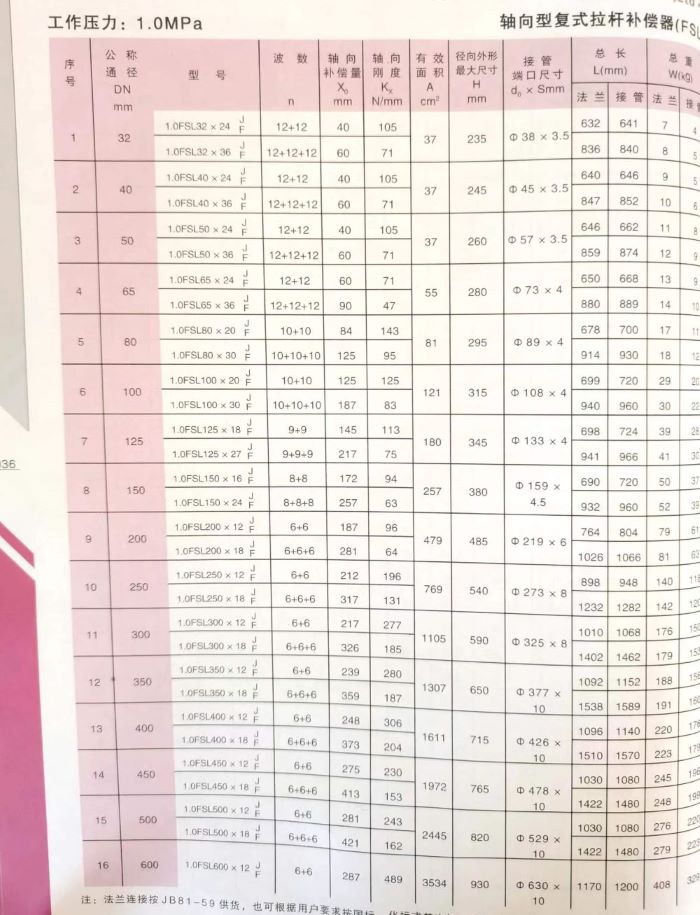 工作压力：1.0MPa
轴向型复式拉杆补偿器(FSL
序号 公称通径 DN mm 型号 波数 n 轴向补偿量 X₀ mm 轴向刚度 Kx N/mm 有效面积 A cm² 径向外形最大尺寸 H mm 接管端口尺寸 d₀ × Smm 总长 L(mm) 法兰 接管 总重 W(kg) 法兰
1 32 1.0FSL32 × 24 J F 12+12 40 105 37 235 Φ 38 × 3.5 632 641 7 4
1.0FSL32 × 36 J F 12+12+12 60 71 836 840 8 5
2 40 1.0FSL40 × 24 J F 12+12 40 105 37 245 Φ 45 × 3.5 640 646 9 5
1.0FSL40 × 36 J F 12+12+12 60 71 847 852 10 6
3 50 1.0FSL50 × 24 J F 12+12 40 105 37 260 Φ 57 × 3.5 646 662 11 8
1.0FSL50 × 36 J F 12+12+12 60 71 859 874 12 9
4 65 1.0FSL65 × 24 J F 12+12 60 71 55 280 Φ 73 × 4 650 668 13 9
1.0FSL65 × 36 J F 12+12+12 90 47 880 889 14 10
5 80 1.0FSL80 × 20 J F 10+10 84 143 81 295 Φ 89 × 4 678 700 17 11
1.0FSL80 × 30 J F 10+10+10 125 95 914 930 18 12
6 100 1.0FSL100 × 20 J F 10+10 125 125 121 315 Φ 108 × 4 699 720 29 20
1.0FSL100 × 30 J F 10+10+10 187 83 940 960 30 22
7 125 1.0FSL125 × 18 J F 9+9 145 113 180 345 Φ 133 × 4 698 724 39 28
1.0FSL125 × 27 J F 9+9+9 217 75 941 966 41 30
8 150 1.0FSL150 × 16 J F 8+8 172 94 257 380 Φ 159 × 4.5 690 720 50 37
1.0FSL150 × 24 J F 8+8+8 257 63 932 960 52 39
9 200 1.0FSL200 × 12 J F 6+6 187 96 479 485 Φ 219 × 6 764 804 79 61
1.0FSL200 × 18 J F 6+6+6 281 64 1026 1066 81 63
10 250 1.0FSL250 × 12 J F 6+6 212 196 769 540 Φ 273 × 8 898 948 140
1.0FSL250 × 18 J F 6+6+6 317 131 1232 1282 142
11 300 1.0FSL300 × 12 J F 6+6 217 277 1105 590 Φ 325 × 8 1010 1068 176
1.0FSL300 × 18 J F 6+6+6 326 185 1402 1462 179
12 350 1.0FSL350 × 12 J F 6+6 239 280 1307 650 Φ 377 × 10 1092 1152 188
1.0FSL350 × 18 J F 6+6+6 359 187 1538 1589 191
13 400 1.0FSL400 × 12 J F 6+6 248 306 1611 715 Φ 426 × 10 1096 1140 220
1.0FSL400 × 18 J F 6+6+6 373 204 1510 1570 223
14 450 1.0FSL450 × 12 J F 6+6 275 230 1972 765 Φ 478 × 10 1030 1080 245
1.0FSL450 × 18 J F 6+6+6 413 153 1422 1480 248
15 500 1.0FSL500 × 12 J F 6+6 281 243 2445 820 Φ 529 × 10 1030 1080 276
1.0FSL500 × 18 J F 6+6+6 421 162 1422 1480 279
16 600 1.0FSL600 × 12 J F 6+6 287 489 3534 930 Φ 630 × 10 1170 1200 408
注：法兰连接按JB81-59供货，也可根据用户要求按国标
36